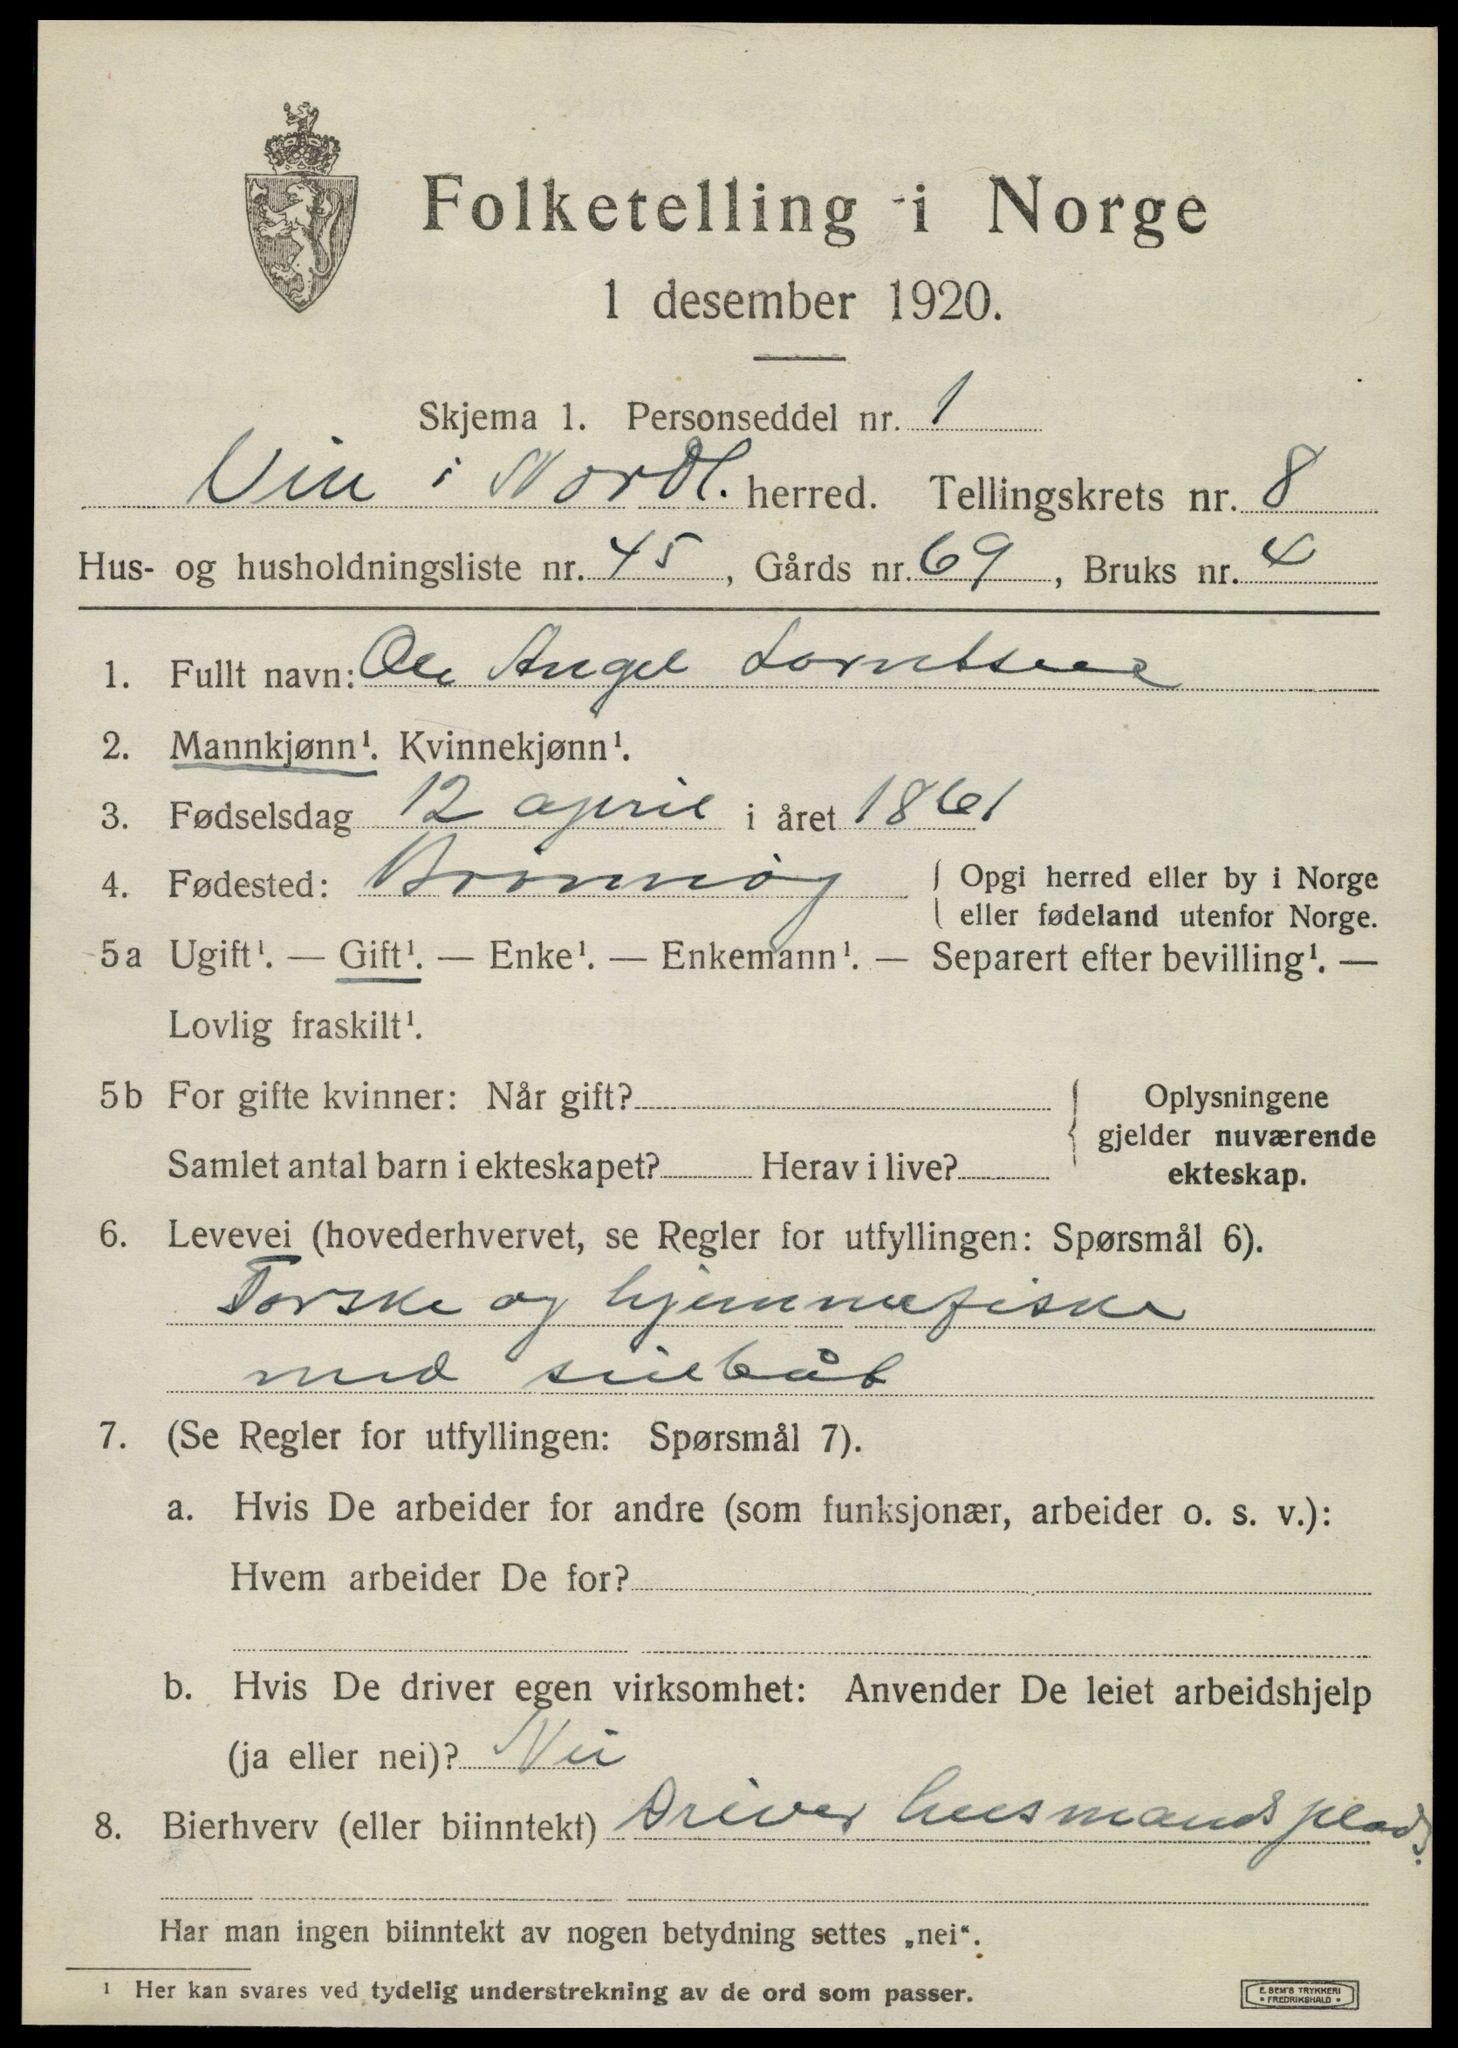 Folketelling i Norge
1 desember 1920.
Skjema 1. Personseddel nr. 1
Vik i Nordl. herred. Tellingskrets nr. 8
Hus- og husholdningsliste nr. 45, Gårds nr. 69, Bruks nr. 4
1. Fullt navn: Ole Angel Lorntsen
2. Mannkjønn¹. Kvinnekjønn¹.
3. Fødselsdag 12 april i året 1861
4. Fødested: Brønnøy { Opgi herred eller by i Norge
eller fødeland utenfor Norge.
5a Ugift¹. — Gift¹. — Enke¹. — Enkemann¹. — Separert efter bevilling¹. —
Lovlig fraskilt¹.
5b For gifte kvinner: Når gift?
Samlet antal barn i ekteskapet? Herav i live?
{ Oplysningene
gjelder nuværende
ekteskap.
6. Levevei (hovederhvervet, se Regler for utfyllingen: Spørsmål 6).
Torske og hjemmefiske
med seilbåt
7. (Se Regler for utfyllingen: Spørsmål 7).
a. Hvis De arbeider for andre (som funksjonær, arbeider o. s. v.):
Hvem arbeider De for?
b. Hvis De driver egen virksomhet: Anvender De leiet arbeidshjelp
(ja eller nei)? Nei
8. Bierhverv (eller biinntekt) Driver husmandsplads.
Har man ingen biinntekt av nogen betydning settes „nei“.
¹ Her kan svares ved tydelig understrekning av de ord som passer.
E. SEM'S TRYKKERI
• FREDRIKSHALD •